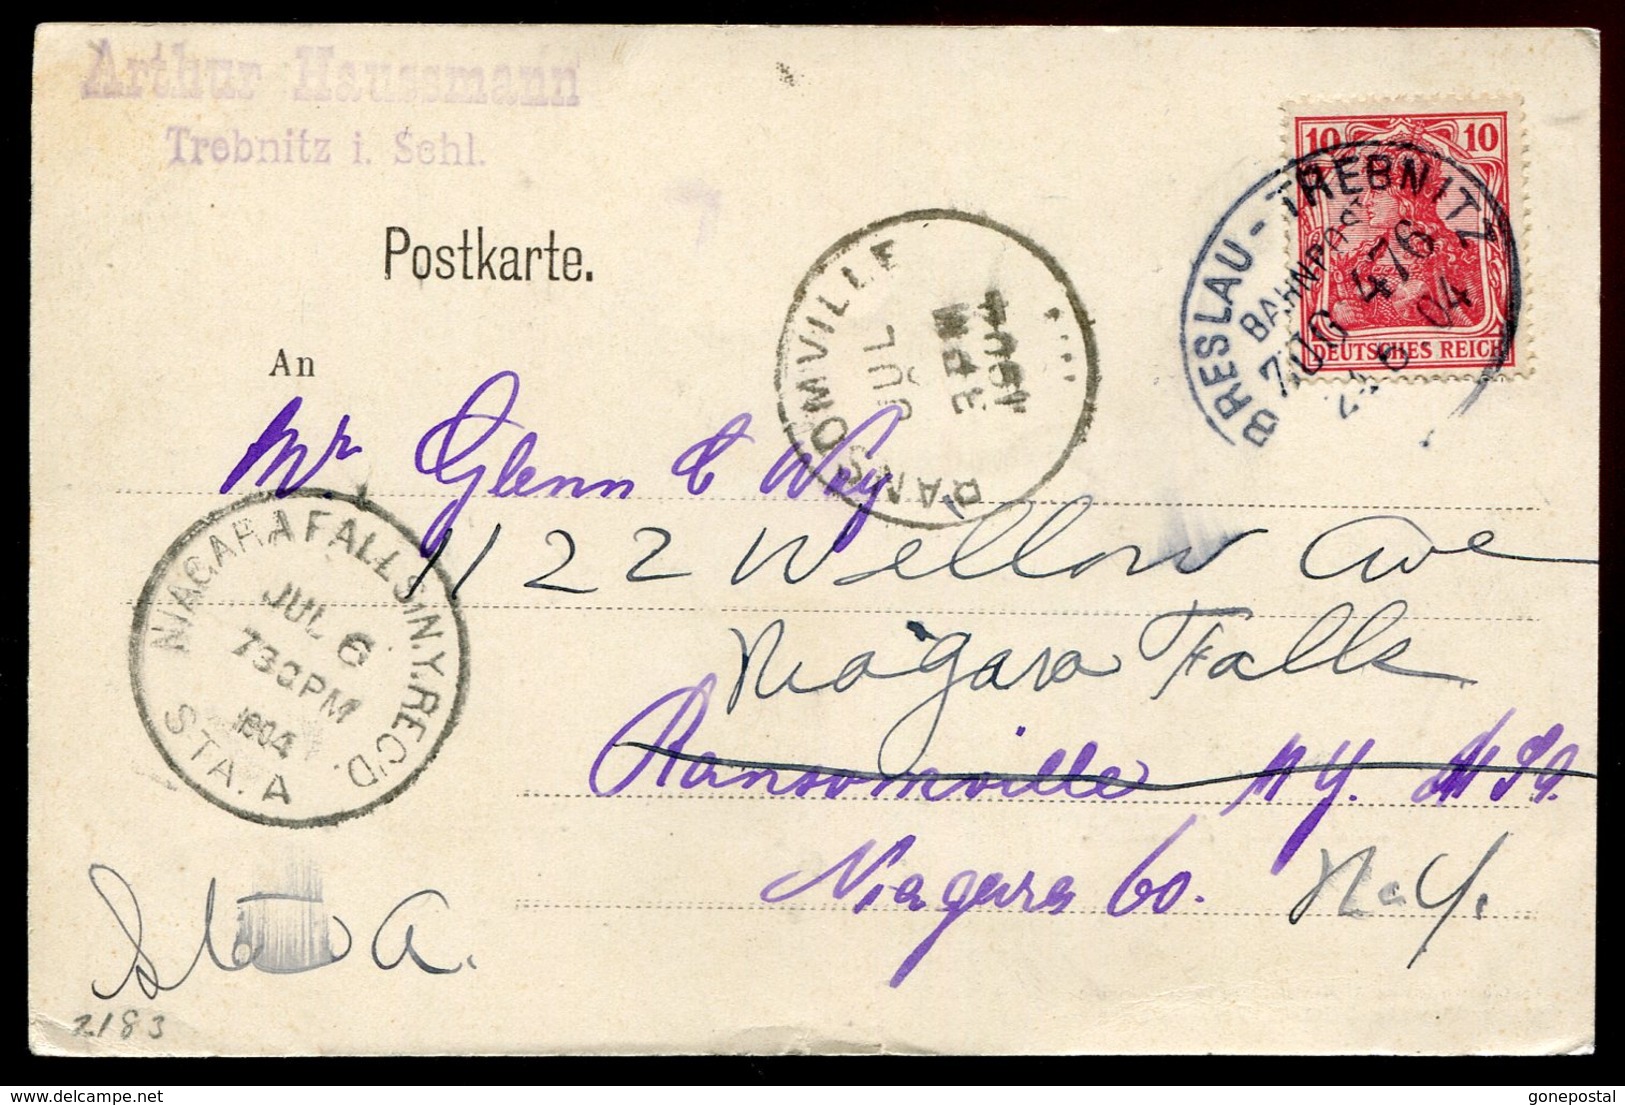 Arthur Haussmann
Trebnitz i. Schl.
Postkarte.
An
10 10
DEUTSCHES REICH
BRESLAU-TREBNITZ
BAHNPOST
ZUG 476
04
RANSOMVILLE
JUL
3 PM
1904
Mr Glenn C Wry
1122 Wellow Ave
Niagara Falls
Ransomville N Y.
Niagara Co. N.Y.
NIAGARA FALLS, N.Y. REC'D.
JUL 6
730 PM
1904
STA. A
Sta A.
2183
gonepostal